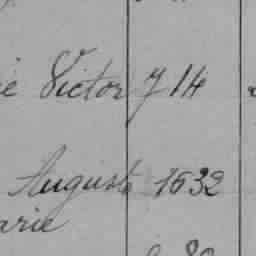 ie Victor y 14
Auguste 1632
arie